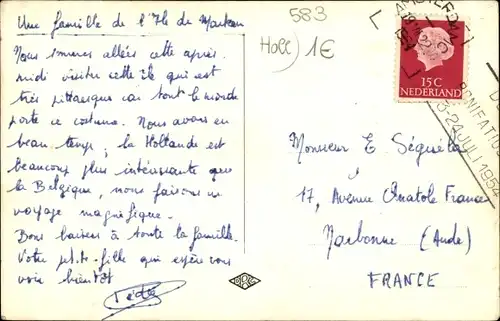 Une famille de l'Ile de Marken
Nous sommes allées cette après
midi visiter cette île qui est
très pittoresque car tout le monde
porte ce costume. Nous avons eu
beau temps; la Hollande est
beaucoup plus intéressante que
la Belgique, nous faisons un
voyage magnifique.
Bons baisers à toute la famille.
Votre petite fille qui espère vous
voir bientôt
583
Holl 1€
AMSTERDAM
1954
15C
NEDERLAND
BONIFATIUS
3-24 JULI 1954
Monsieur E Séguéla
17, Avenue Anatole France
Narbonne (Aude)
FRANCE